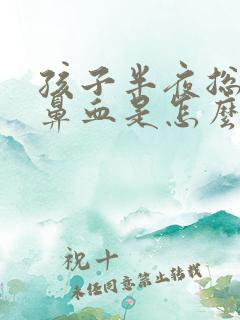 孩子半夜总
鼻血是怎么
祝十
未经同意禁止转载